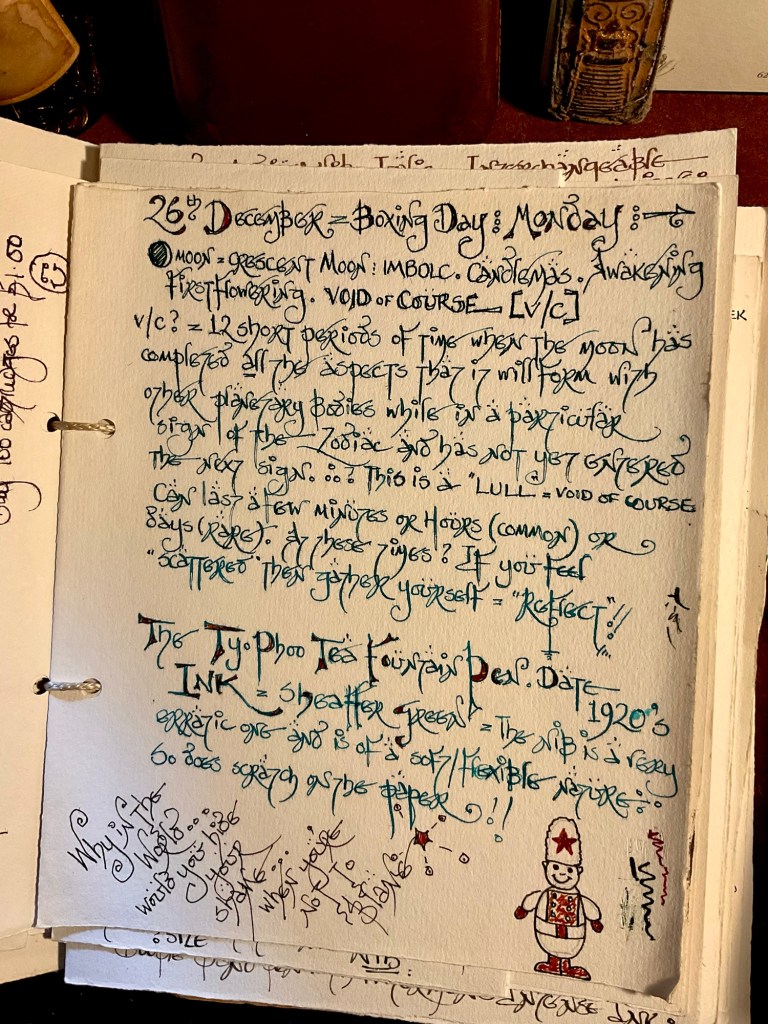 Interchangeable
26th December = Boxing Day : Monday :
Moon = Crescent Moon : Imbolc . Candlemas . Awakening
First Flowering . VOID OF COURSE [V/C]
V/C? = 12 short periods of time when the moon has
completed all the aspects that it will form with
other planetary bodies while in a particular
sign of the Zodiac and has not yet entered
the next sign. This is a "LULL = VOID OF COURSE
Can last a few minutes or hours (common) or
days (rare). At these times? If you feel
"scattered" then gather yourself = "REFLECT"!!
The Ty.Phoo Tea Fountain Pen. Date
1920's
INK = Sheaffer Green = The nib is a very
erratic one and is of a soft/flexible nature
So does scratch on the paper !!
Why in the
World...
would you hide
your
shame...
when you're
not to
blame
Buy 100 cartridges for $1.00
EK
62
: SIZE
NIB :
INTENSE INK :